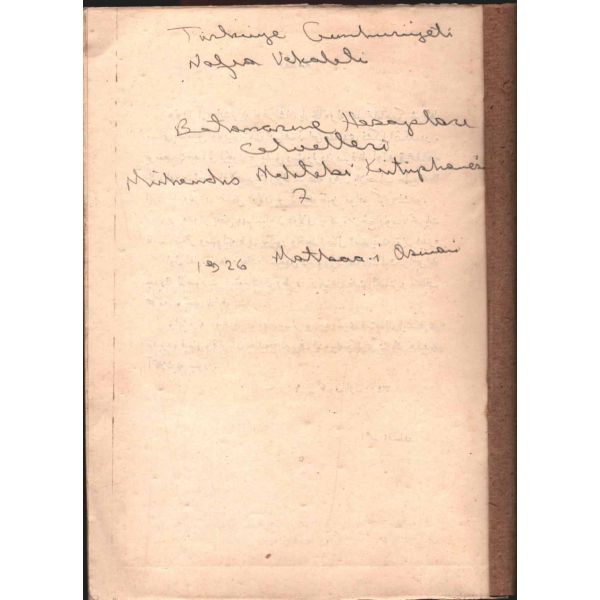 Türkiye Cumhuriyeti
Nafıa Vekaleti
Betonarme Hesapları
Cetvelleri
Mühendis Mektebi Kütüphanesi
7
1926 Matbaa-i Osmani